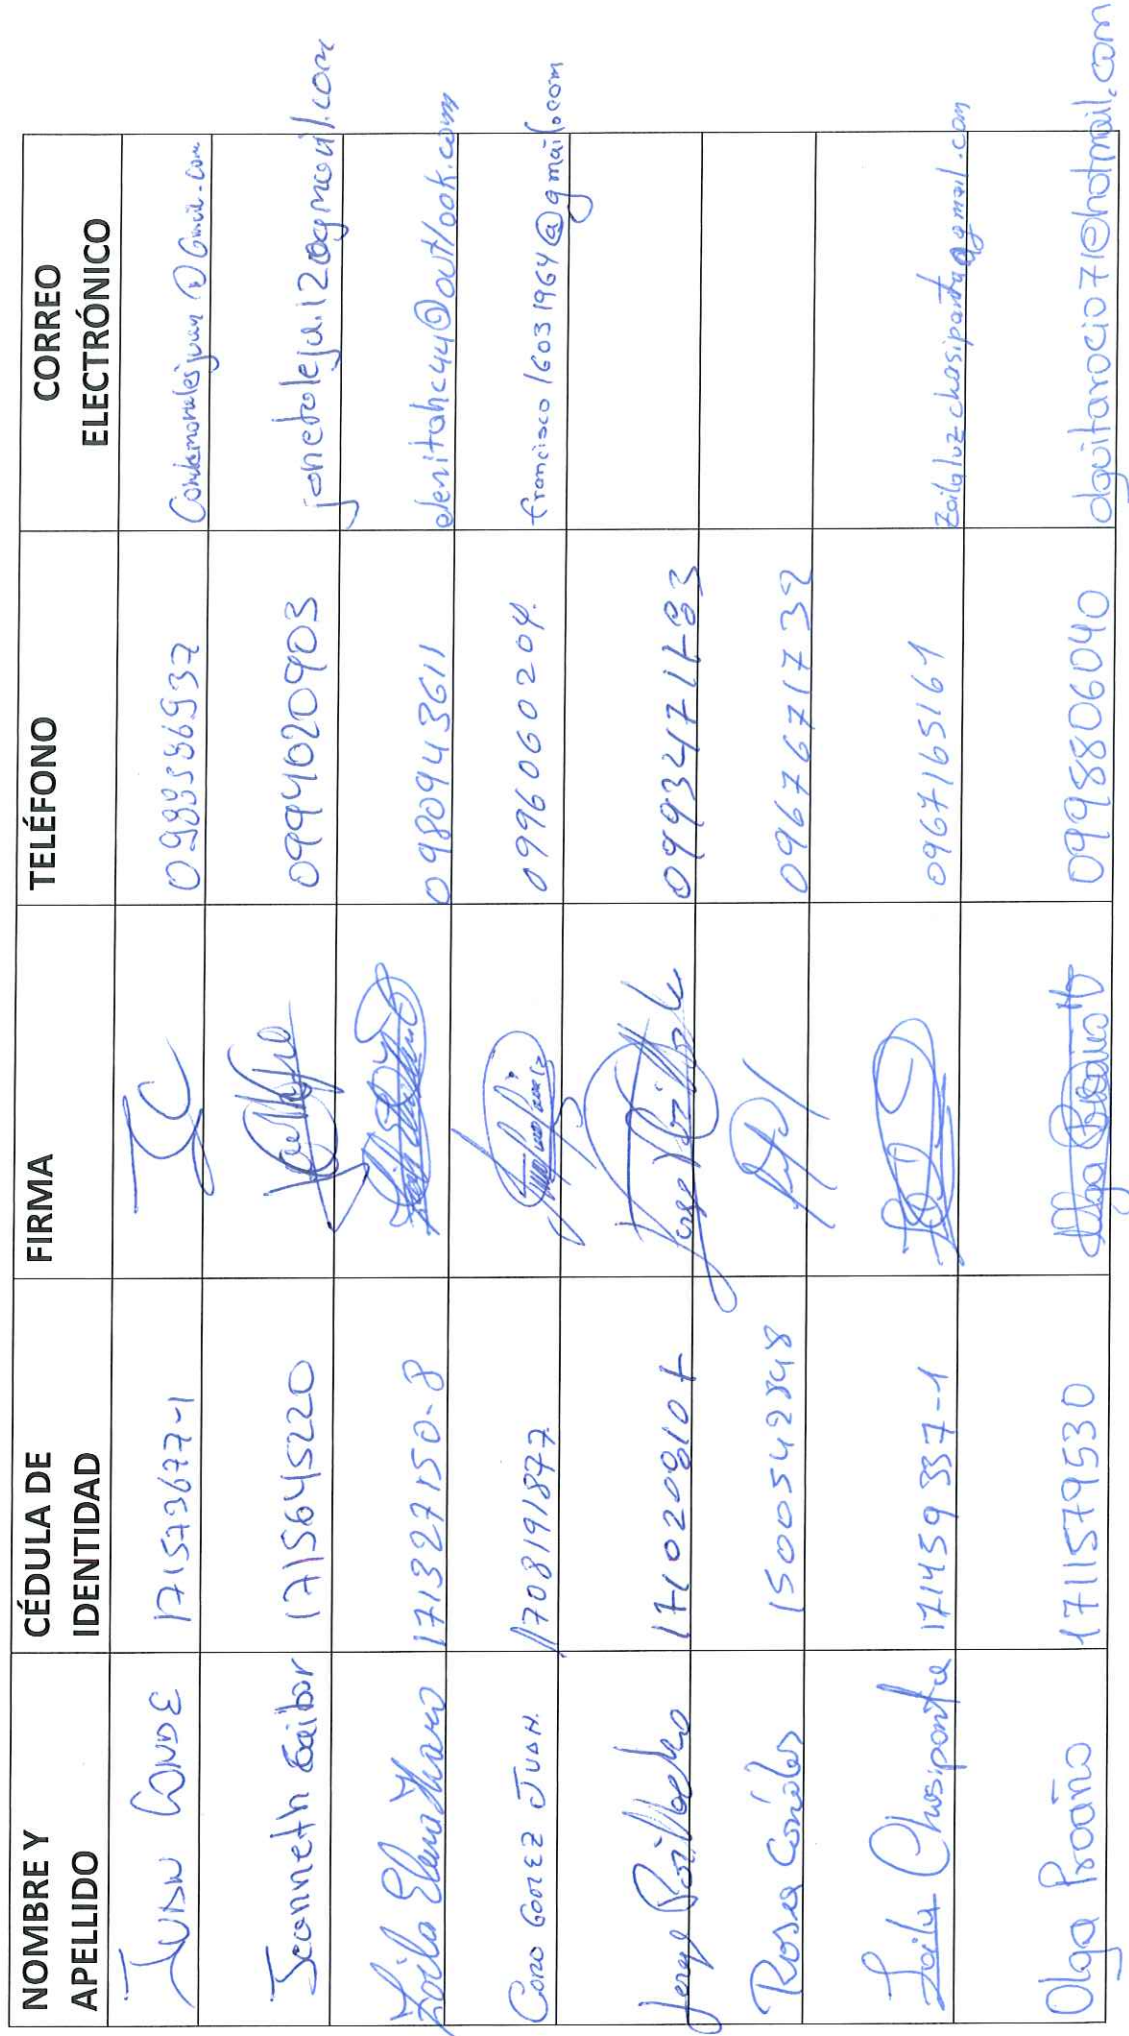 NOMBRE Y APELLIDO | CÉDULA DE IDENTIDAD | FIRMA | TELÉFONO | CORREO ELECTRÓNICO
JUAN CONDE | 171573677-1 | JC | | Condemoralesjuan@Gmail.com
Jeanneth Gaibor | 1715645220 | | 0994020903 |
Zoila Elena Haro | 171327150-8 | | 0980943611 | elenitahc44@outlook.com
CORO GOMEZ JUAN. | 1708191877 | | 0996060204. | francisco16031964@gmail.com
Jorge | 1710200810 | | |
Rosa | 1500542848 | | 0967671732 |
Zoila Chasipanta | 171459337-1 | | 0967165161 | zoilaluzchasipanta@gmail.com
Olga Proaño | 1711579530 | Olga | 0998806040 | olguitarocio71@hotmail.com